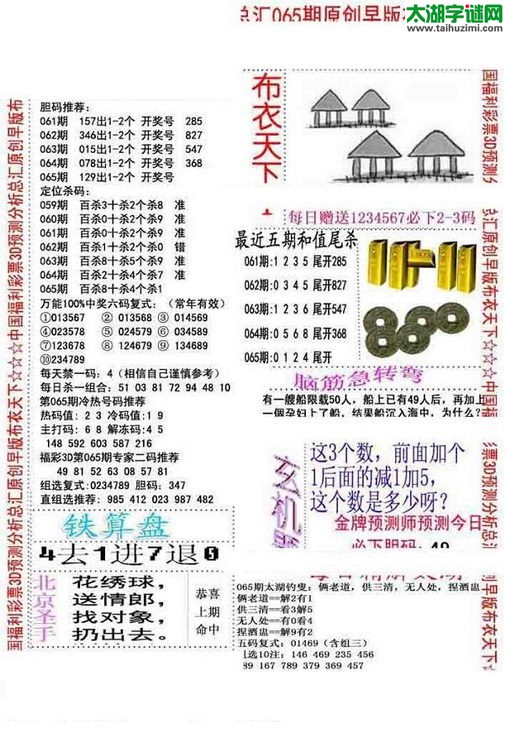 总汇065期原创早版布
太湖字谜网
www.taihuzimi.com
国福利彩票3D预测分析总汇原创早版布衣天下☆☆☆中国福利彩票3D预测分析总汇原创早版布
胆码推荐:
061期 157出1-2个 开奖号 285
062期 346出1-2个 开奖号 827
063期 015出1-2个 开奖号 547
064期 078出1-2个 开奖号 368
065期 129出1-2个 开奖号
定位杀码:
059期 百杀3十杀2个杀8 准
060期 百杀0十杀2个杀9 准
061期 百杀4十杀2个杀9 准
062期 百杀1十杀2个杀0 错
063期 百杀8十杀5个杀9 准
064期 百杀2十杀4个杀7 准
065期 百杀8十杀4个杀1
万能100%中奖六码复式:(常年有效)
①013567 ② 013568 ③ 014569
④023578 ⑤ 024579 ⑥ 034689
⑦123678 ⑧ 124679 ⑨ 134589
⑩234789
每天禁一码:4(相信自己谨慎参考)
每日杀一组合:51 03 81 72 94 48 10
第065期冷热号码推荐
热码值:2 3 冷码值:1 9
主打码:6 8 解冻码:4 5
148 592 603 587 216
福彩3D第065期专家二码推荐
49 81 52 63 08 57 81
组选复式:0234789 胆码:347
直组选推荐:985 412 023 987 482
铁算盘
4去1进7退0
北京圣手
花绣球,
送情郎,
找对象,
扔出去。
恭喜
上期
命中
布衣天下
每日赠送1234567必下2-3码
最近五期和值尾杀
061期:1 2 3 5 尾开285
062期:0 3 4 5 尾开827
063期:1 2 3 6 尾开547
064期:0 5 6 8 尾开368
065期:0 1 2 4 尾开
脑筋急转弯
有一艘船限载50人,船上已有49人后,再加上
一个孕妇上了船,结果船沉入海中,为什么?
玄机
这3个数,前面加个
1后面的减1加5,
这个数是多少呀?
金牌预测师预测今日
必下胆码:49
065期太湖钓叟:俩老道,供三清,无人处,捏酒盅
俩老道==解2有1
供三清==看3解5
无人处==有0看4
捏酒盅==解9有2
五码复式:01469(含组三)
选10注:146 469 235 456
189 167 789 379 369 457
国福利彩票3D预测分
总汇原创早版布衣天下☆☆☆中国福
彩票3D预测分析总汇原创早版布衣天下